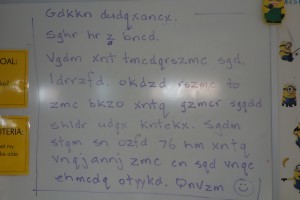 Gdkkn dudqxancx.
Sghr hr z bncd.
Vgdm xnt tmcdqrszmc sgd
ldrrzfd. okdzrd rszmc to
zmc bkzo xntq gzmcr sgqdd
shldr udqx kntckx. Sgdm
stqm sn ozfd 76 hm xntq
vnqjannj zmc cn sgd vnqc
ehmcdq otyykd. QnVzm
OAL:
TERIA: